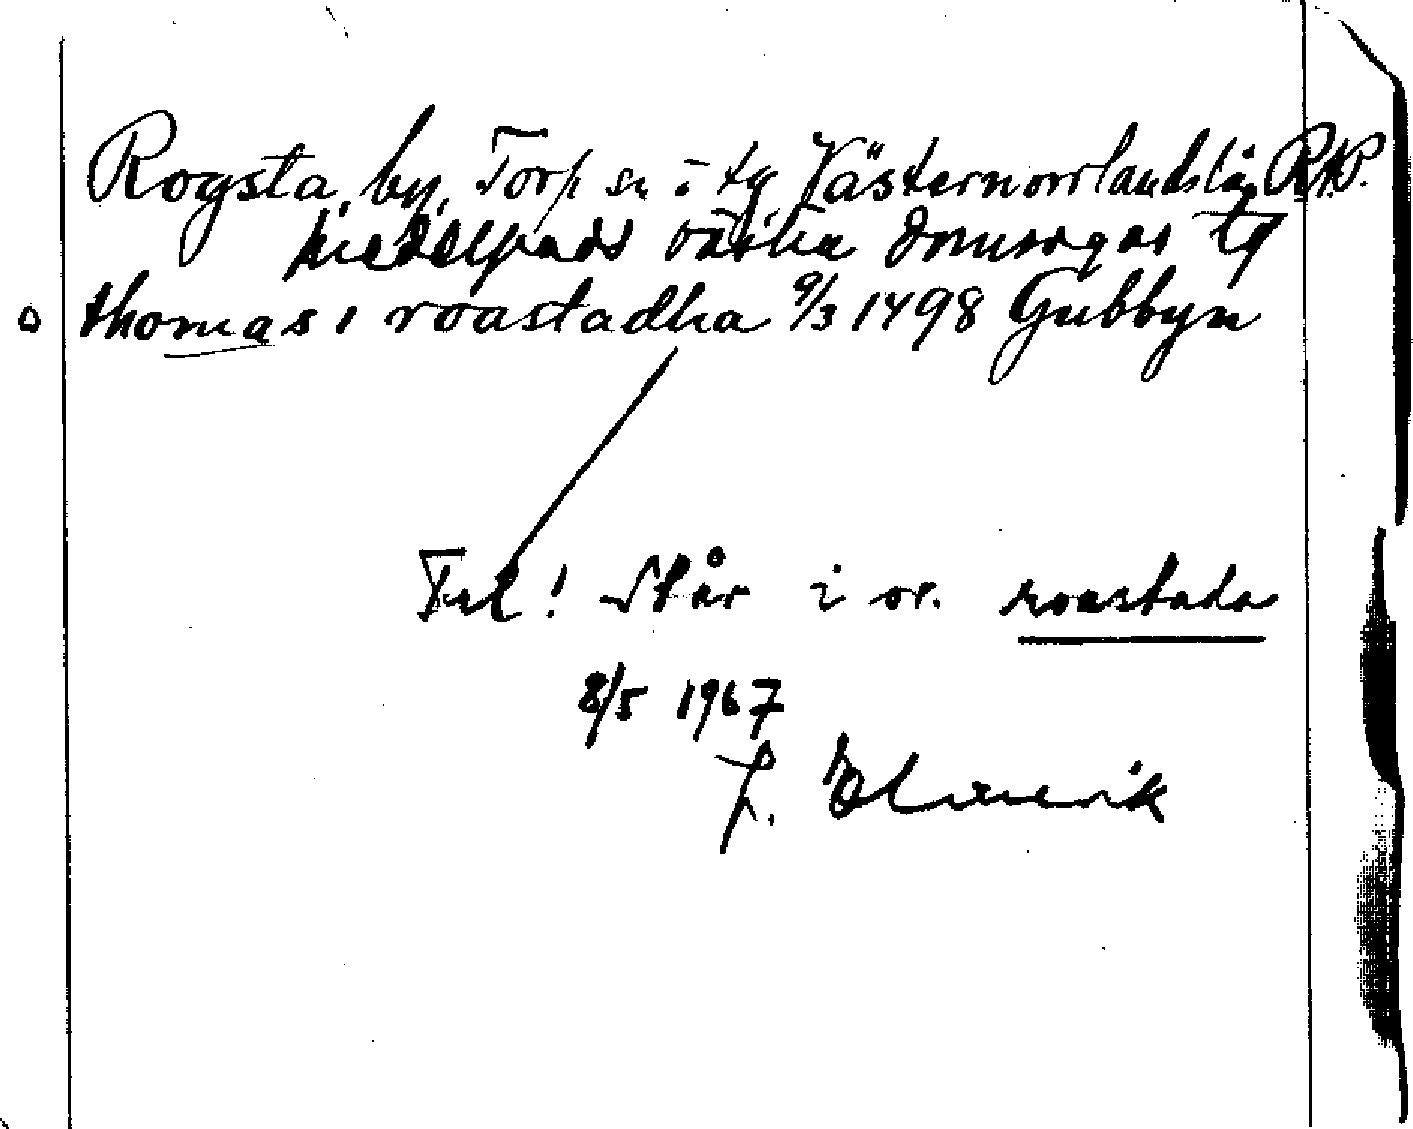 Rogsta, by, Torp sn i tg Västernorrlands län RAP.
Medelpads västra domsagas tg
thomas i roastadha 9/3 1498 Gubbyn
Fel! Står i or. roastada
8/5 1967
L.